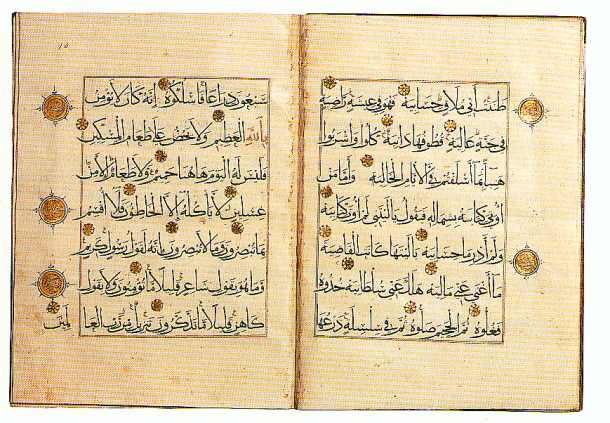 ظننت اني ملاق حسابيه فهو في عيشة راضية
في جنة عالية قطوفها دانية كلوا واشربوا
هنيئا بما اسلفتم في الايام الخالية واما من
اوتي كتابه بشماله فيقول ياليتني لم اوت كتابيه
ولم ادر ما حسابيه ياليتها كانت القاضية
ما اغنى عني ماليه هلك عني سلطانيه خذوه
فغلوه ثم الجحيم صلوه ثم في سلسلة ذرعها
سبعون ذراعا فاسلكوه انه كان لا يؤمن
بالله العظيم ولا يحض على طعام المسكين
فليس له اليوم هاهنا حميم ولا طعام الا من
غسلين لا ياكله الا الخاطون فلا اقسم
بما تبصرون وما لا تبصرون انه لقول رسول كريم
وما هو بقول شاعر قليلا ما تؤمنون ولا بقول
كاهن قليلا ما تذكرون تنزيل من رب العا
لمين